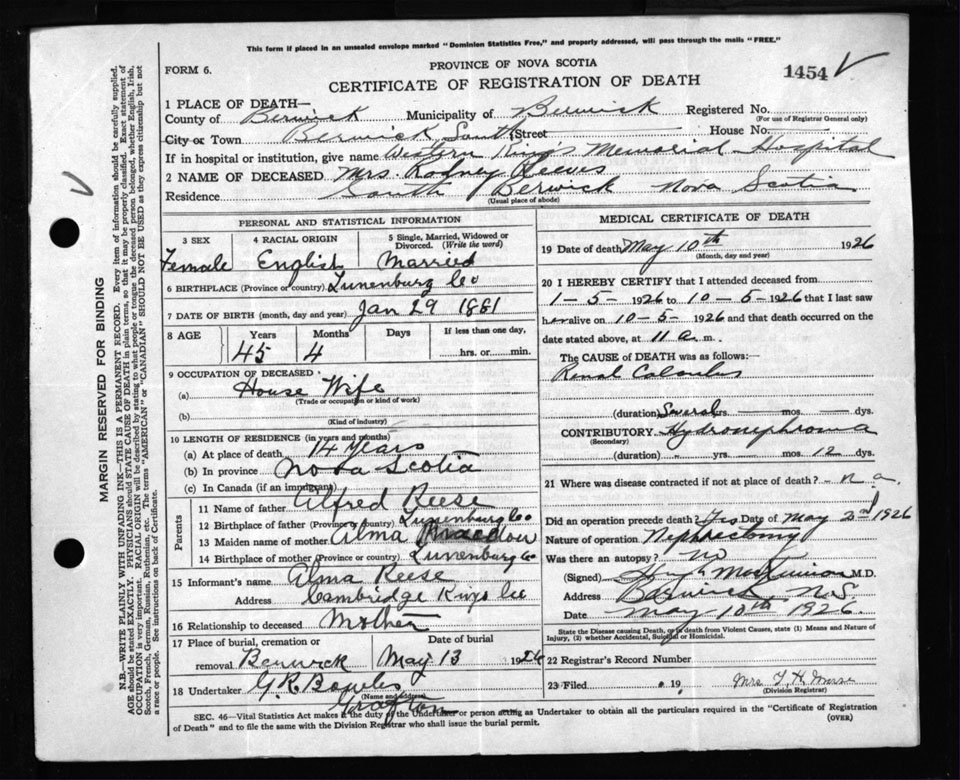 This form if placed in an unsealed envelope marked "Dominion Statistics Free," and properly addressed, will pass through the mails "FREE."
PROVINCE OF NOVA SCOTIA
FORM 6.
CERTIFICATE OF REGISTRATION OF DEATH
1454
1 PLACE OF DEATH—
County of Berwick Municipality of Berwick Registered No.
(For use of Registrar General only)
City or Town Berwick South Street House No.
If in hospital or institution, give name Western Kings Memorial Hospital
2 NAME OF DECEASED Mrs. Rodney Reeves
Residence South Berwick Nova Scotia
(Usual place of abode)
PERSONAL AND STATISTICAL INFORMATION
3 SEX 4 RACIAL ORIGIN 5 Single, Married, Widowed or Divorced. (Write the word)
Female English Married
6 BIRTHPLACE (Province or country) Lunenburg Co
7 DATE OF BIRTH (month, day and year) Jan 29 1881
8 AGE Years Months Days If less than one day,
45 4 hrs. or min.
9 OCCUPATION OF DECEASED
(a) House Wife
(Trade or occupation or kind of work)
(b)
(Kind of industry)
10 LENGTH OF RESIDENCE (in years and months)
(a) At place of death 14 Years
(b) In province Nova Scotia
(c) In Canada (if an immigrant)
Parents
11 Name of father Alfred Reese
12 Birthplace of father (Province or country) Lunenburg Co
13 Maiden name of mother Alma
14 Birthplace of mother (Province or country) Lunenburg Co
15 Informant's name Alma Reese
Address Cambridge Kings Co
16 Relationship to deceased Mother
17 Place of burial, cremation or Date of burial
removal Berwick May 13 1926
18 Undertaker G. R. Bowles
(Name and address)
Grafton
MEDICAL CERTIFICATE OF DEATH
19 Date of death May 10th 1926
(Month, day and year)
20 I HEREBY CERTIFY that I attended deceased from
1-5-1926 to 10-5-1926 that I last saw
her alive on 10-5-1926 and that death occurred on the
date stated above, at 11 a.m.
The CAUSE OF DEATH was as follows:
Renal Calculus
(duration) Several yrs. mos. dys.
CONTRIBUTORY Hydronephroma
(Secondary)
(duration) yrs. mos. 12 dys.
21 Where was disease contracted if not at place of death? - n a.
Did an operation precede death? Yes Date of May 2nd 1926
Nature of operation Nephrectomy
Was there an autopsy? No
(Signed) M.D.
Address Berwick, N.S.
Date May 10th, 1926.
State the Disease causing Death, or, in death from Violent Causes, state (1) Means and Nature of Injury, (2) whether Accidental, Suicidal or Homicidal.
22 Registrar's Record Number
23 Filed 19 Mrs. T. H. Morse
(Division Registrar)
SEC. 46—Vital Statistics Act makes it the duty of the Undertaker or person acting as Undertaker to obtain all the particulars required in the "Certificate of Registration
of Death" and to file the same with the Division Registrar who shall issue the burial permit.
(OVER)
MARGIN RESERVED FOR BINDING
N.B.—WRITE PLAINLY WITH UNFADING INK—THIS IS A PERMANENT RECORD. Every item of information should be carefully supplied.
AGE should be stated EXACTLY. PHYSICIANS should STATE CAUSE OF DEATH in plain terms, so that it may be properly classified. Exact statement of
OCCUPATION is very important. RACIAL ORIGIN will be described by stating to what people or tongue the deceased person belonged, whether English, Irish,
Scotch, French, German, Russian, Ruthenian, etc. The terms "AMERICAN" or "CANADIAN" SHOULD NOT BE USED as they express citizenship but not
a race or people. See instructions on back of Certificate.